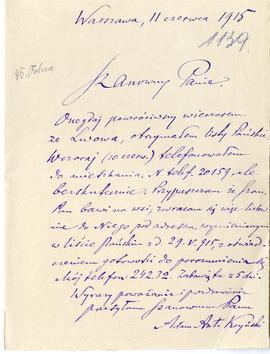 Warszawa, 11 czerwca 1915
1139
Szanowny Panie.
Onegdaj powróciwszy wieczorem
ze Lwowa, otrzymałem listy Pańskie.
Wczoraj (10 czerw.) telefonowałem
do mieszkania. N. telef. 20159, ale
bezskutecznie. Przypuszczam że Szan.
Pan bawi na wsi, zwracam się więc listow
nie do Niego pod adresem, wymienionym
w liście Pańskim z d. 29.V.915, z oświad
czeniem gotowości do porozumienia się
Mój telefon 24232.
Wyrazy poważania i pozdrowienia
przesyłam Szanownemu Panu
Adam Ant. Kryński